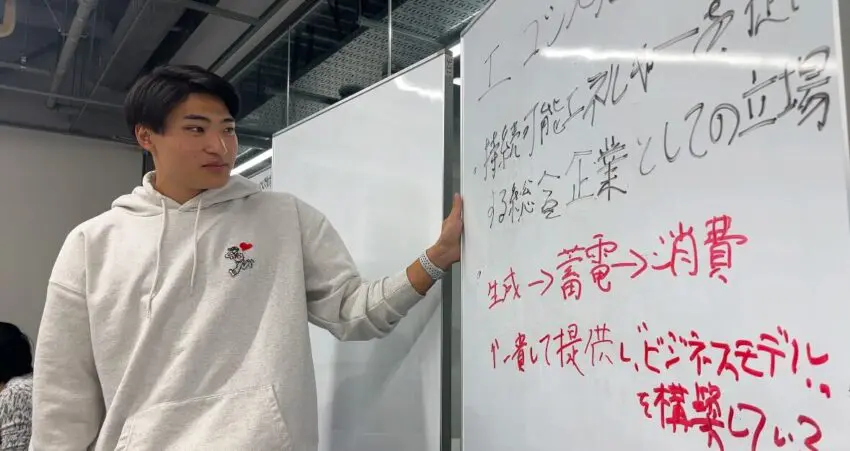 エコシステム
・持続可能エネルギーを提供
する総合企業としての立場
・生成→蓄電→消費
を一貫して提供し、ビジネスモデル
を構築している